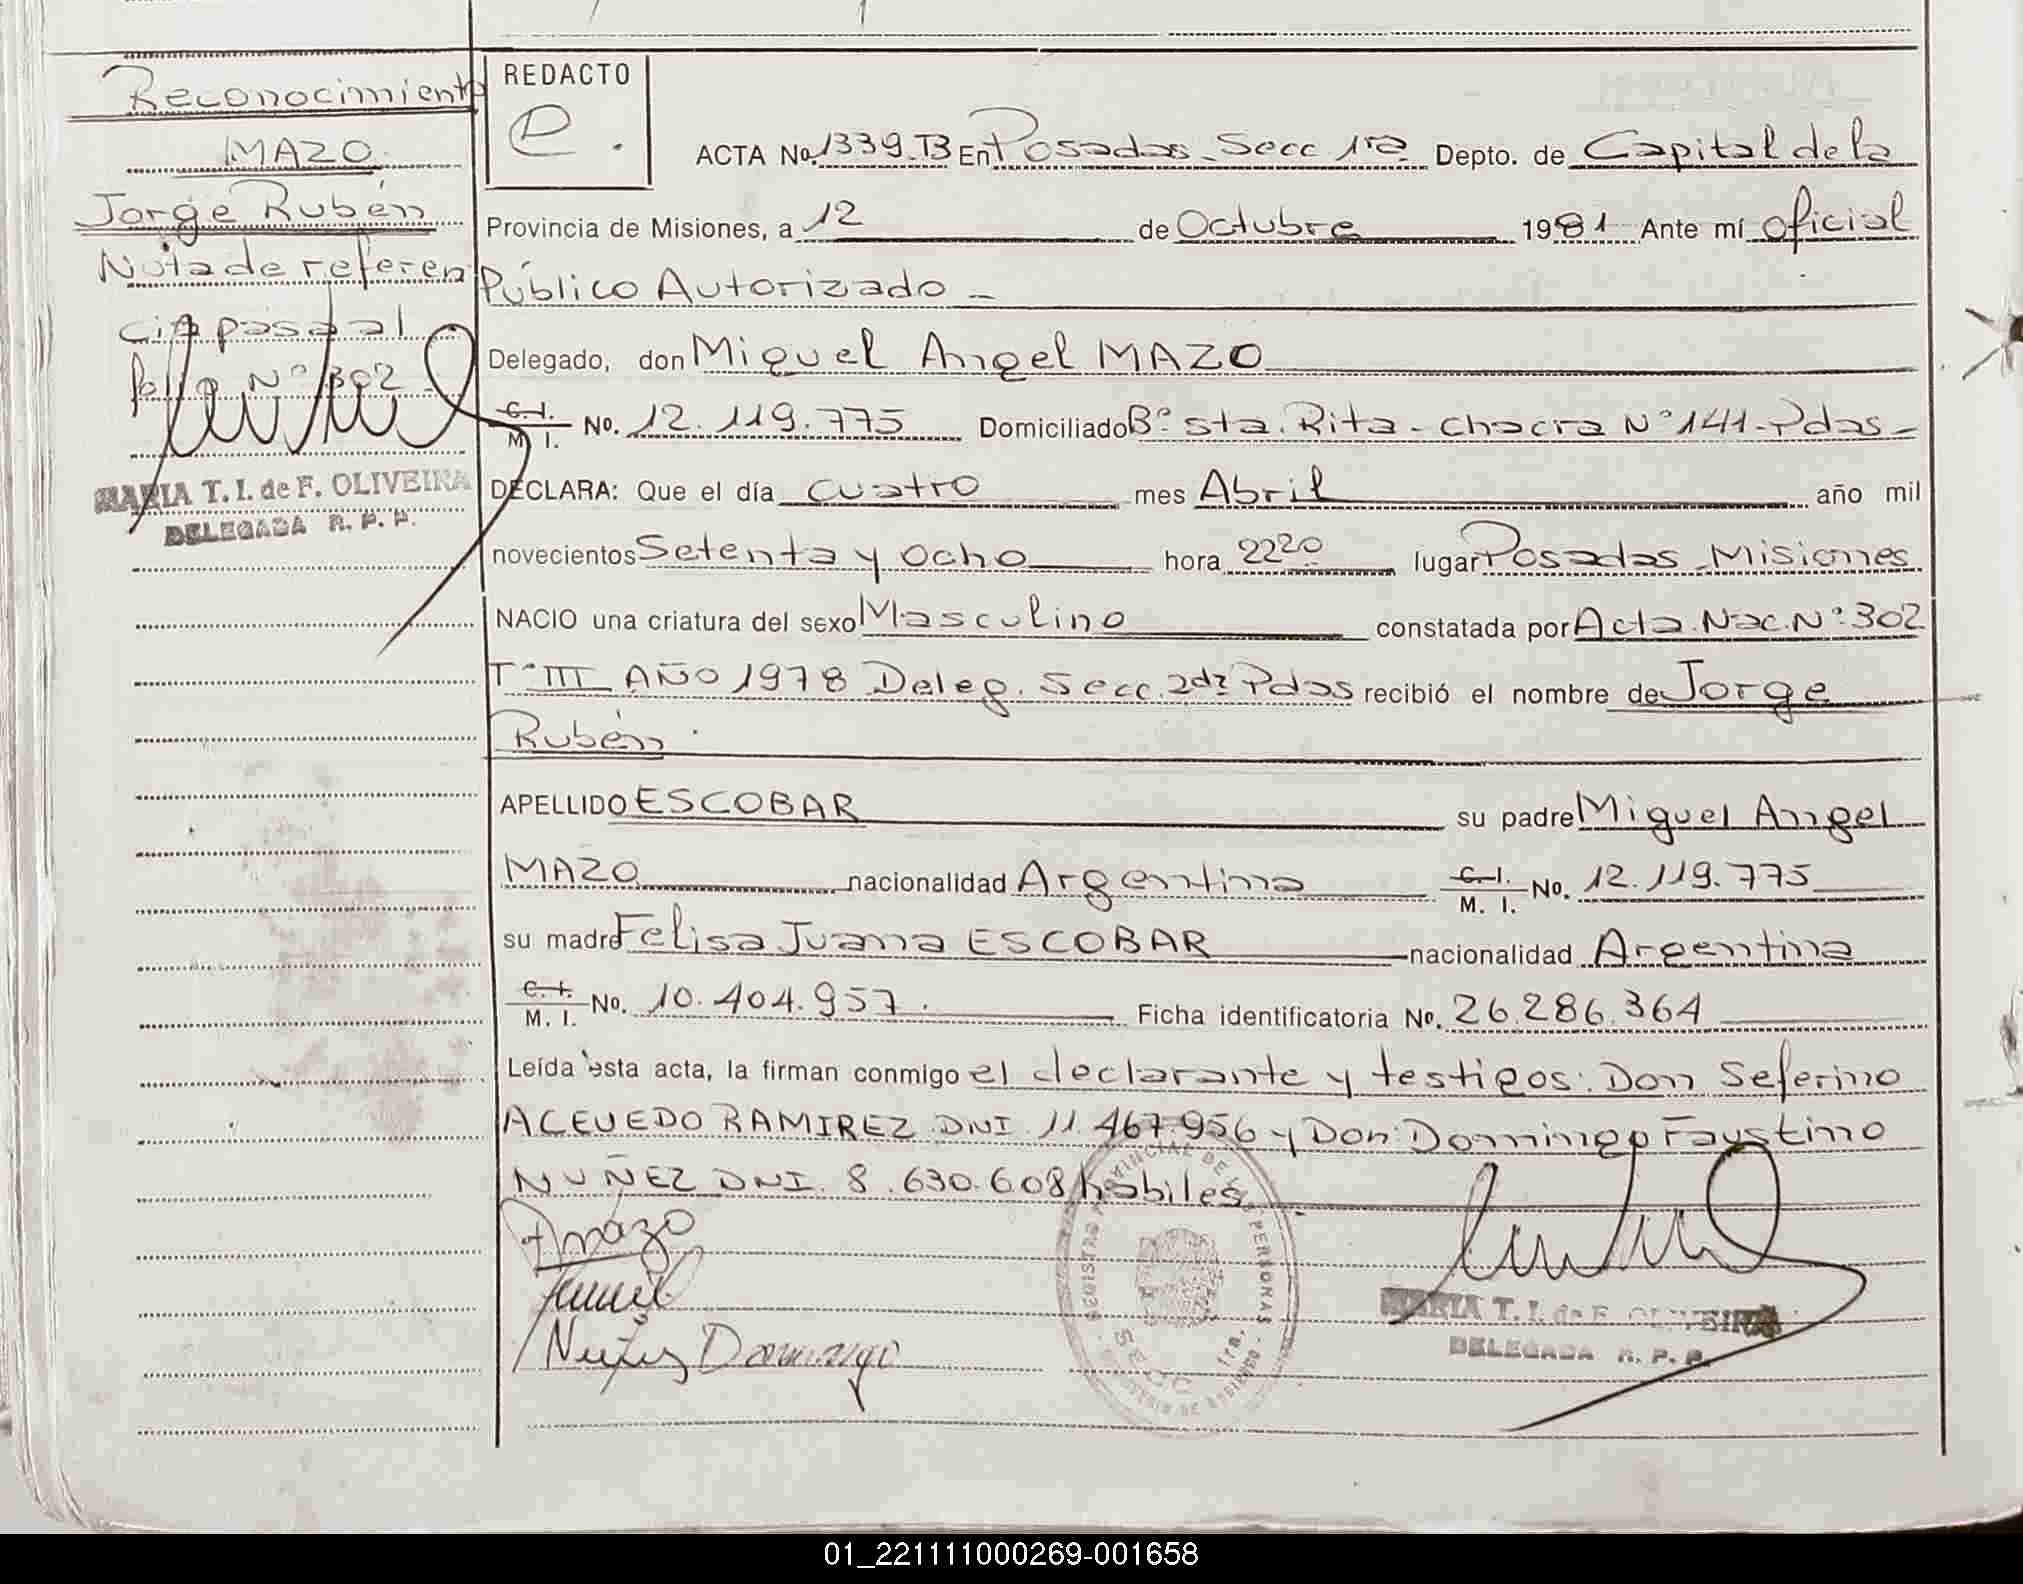 Reconocimiento
MAZO
Jorge Rubén
Nota de referen
cia pasa al
folio Nº 302
MARIA T. I. de F. OLIVEIRA
DELEGADA R. P. P.
REDACTO
e.
ACTA No. 1339.TB En Posadas - Secc 1ra Depto. de Capital de la
Provincia de Misiones, a 12 de Octubre 1981 Ante mí oficial
Público Autorizado -
Delegado, don Miguel Angel MAZO
C. I. M. I. No. 12.119.775 Domiciliado Bº Sta. Rita - chacra Nº 141 - Pdas -
DECLARA: Que el día cuatro mes Abril año mil
novecientos Setenta y Ocho hora 2220 lugar Posadas - Misiones
NACIO una criatura del sexo Masculino constatada por Acta Nac. Nº 302
Tº III AÑO 1978 Deleg. Secc. 2da Pdas recibió el nombre de Jorge
Rubén
APELLIDO ESCOBAR su padre Miguel Angel
MAZO nacionalidad Argentina C. I. M. I. No. 12.119.775
su madre Felisa Juana ESCOBAR nacionalidad Argentina
C. I. M. I. No. 10.404.957. Ficha identificatoria No. 26.286.364
Leída esta acta, la firman conmigo el declarante y testigos: Don Seferino
ACEVEDO RAMIREZ DNI 11.467.956 y Don Domingo Faustino
NUÑEZ DNI. 8.630.608 hábiles
Mazo
Nuñez Domingo
MARIA T. I. de F. OLIVEIRA
DELEGADA R. P. P.
01_221111000269-001658